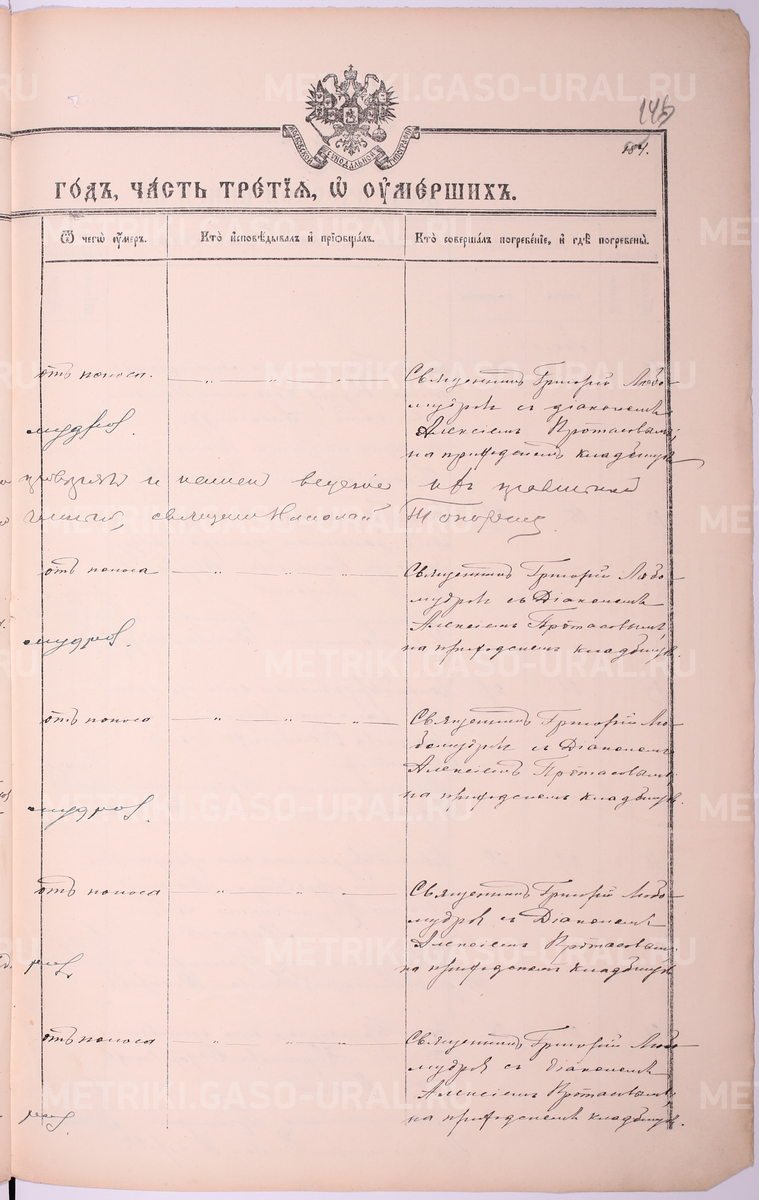 METRIKI.GASO-URAL.RU
145
187.
МОСКОВСКОЙ СѴНОДАЛЬНОЙ ТИПОГРАФІИ
го́дъ, ча́сть тре́тїѧ, ѡ᷍ ᲂу҆ме́ршихъ.
Ѿ чегѡ̀ ᲂу҆́меръ.
Кто̀ и҆сповѣ́дывалъ и҆ прїѡбща́лъ.
Кто̀ соверша́лъ погребе́нїе, и҆ гдѣ̀ погребены̀.
отъ поноса.
— „ — „ — „ —
Священникъ Григорій Любо-
мудровъ съ діакономъ
Алексіемъ Протасовымъ,
на приходскомъ кладбищѣ
мудровъ.
священникъ Николай Топорковъ.
отъ поноса
— „ — „ — „ —
Священникъ Григорій Любо-
мудровъ съ Діакономъ
Алексіемъ Протасовымъ,
на приходскомъ кладбищѣ.
мудровъ.
отъ поноса
— „ — „ — „ —
Священникъ Григорій Лю-
бомудровъ съ Діакономъ
Алексіемъ Протасовымъ
на приходскомъ кладбищѣ.
мудровъ.
отъ поноса
— „ — „ — „ —
Священникъ Григорій Любо-
мудровъ съ Діакономъ
Алексіемъ Протасовымъ
на приходскомъ кладбищѣ
отъ поноса
— „ — „ — „ —
Священникъ Григорій Любо-
мудровъ съ діакономъ
Алексіемъ Протасовымъ,
на приходскомъ кладбищѣ.